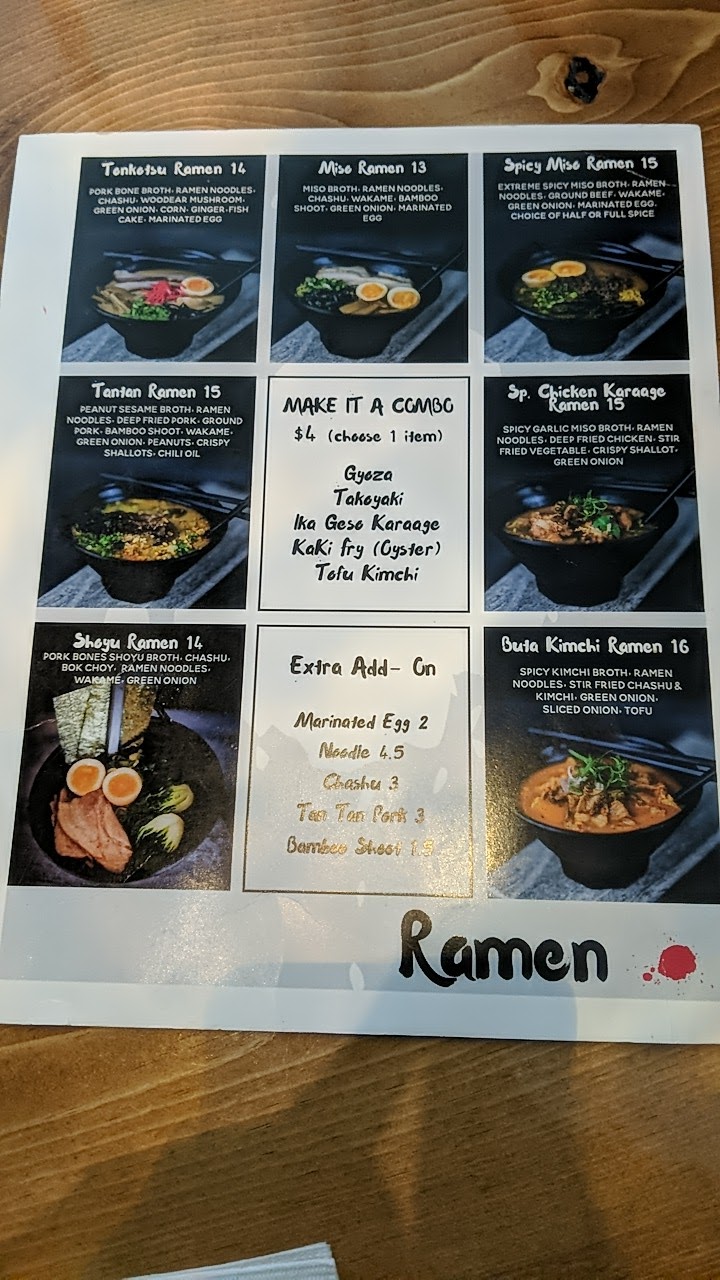 Tonkotsu Ramen 14
PORK BONE BROTH· RAMEN NOODLES·
CHASHU· WOODEAR MUSHROOM·
GREEN ONION· CORN· GINGER·FISH
CAKE· MARINATED EGG
Miso Ramen 13
MISO BROTH· RAMEN NOODLES·
CHASHU· WAKAME· BAMBOO
SHOOT· GREEN ONION· MARINATED
EGG
Spicy Miso Ramen 15
EXTREME SPICY MISO BROTH· RAMEN
NOODLES· GROUND BEEF· WAKAME·
GREEN ONION· MARINATED EGG·
CHOICE OF HALF OR FULL SPICE
Tantan Ramen 15
PEANUT SESAME BROTH· RAMEN
NOODLES· DEEP FRIED PORK· GROUND
PORK· BAMBOO SHOOT· WAKAME·
GREEN ONION· PEANUTS· CRISPY
SHALLOTS· CHILI OIL
MAKE IT A COMBO
$4 (choose 1 item)
Gyoza
Takoyaki
Ika Geso Karaage
KaKi fry (Oyster)
Tofu Kimchi
Sp. Chicken Karaage
Ramen 15
SPICY GARLIC MISO BROTH· RAMEN
NOODLES· DEEP FRIED CHICKEN· STIR
FRIED VEGETABLE· CRISPY SHALLOT·
GREEN ONION
Shoyu Ramen 14
PORK BONES SHOYU BROTH· CHASHU·
BOK CHOY· RAMEN NOODLES·
WAKAME· GREEN ONION
Extra Add- On
Marinated Egg 2
Noodle 4.5
Chashu 3
Tan Tan Pork 3
Bamboo Shoot 1.5
Buta Kimchi Ramen 16
SPICY KIMCHI BROTH· RAMEN
NOODLES· STIR FRIED CHASHU &
KIMCHI· GREEN ONION·
SLICED ONION· TOFU
Ramen